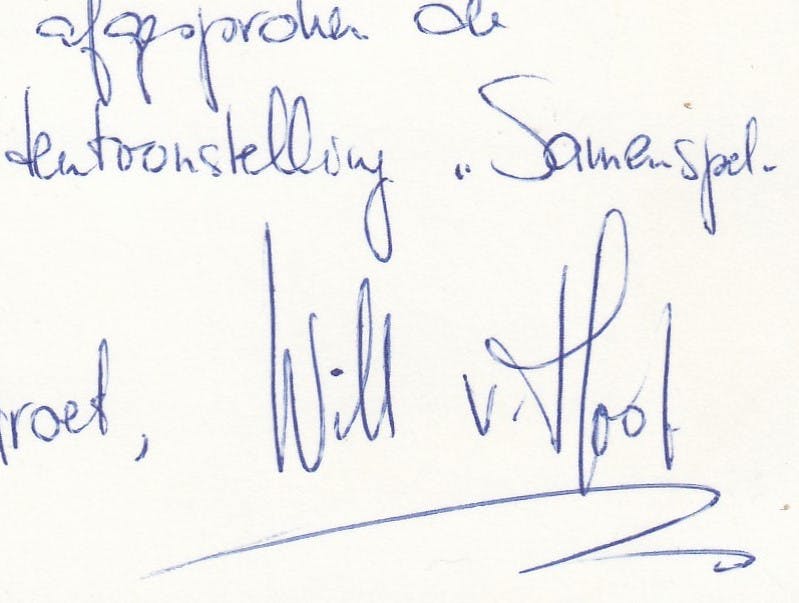 afgesproken de
tentoonstelling „Samenspel-
groet, Will v. 't Hoof